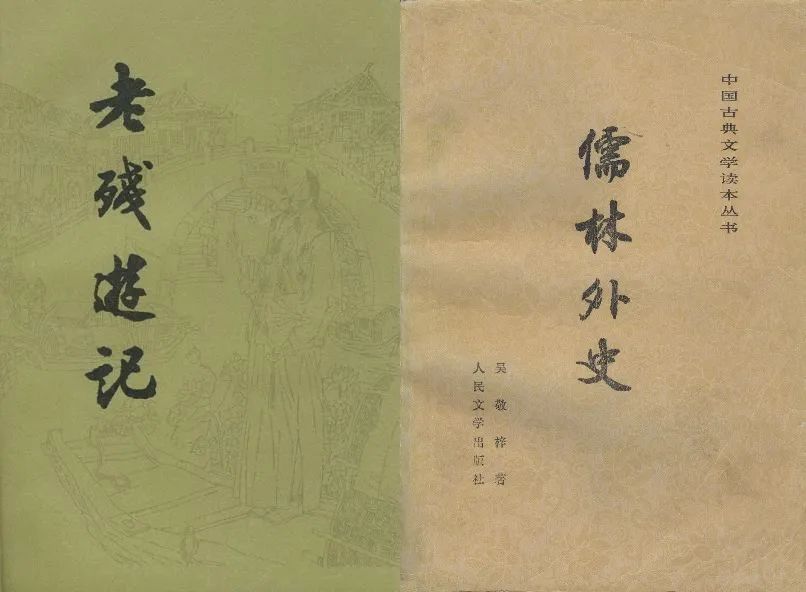 老残遊记
中国古典文学读本丛书
儒林外史
吴敬梓著
人民文学出版社